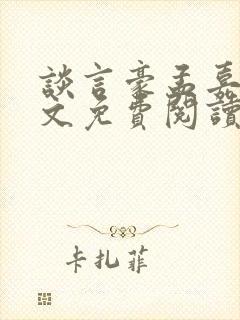 談言豪孟嘉
文免費閱讀
卡扎菲